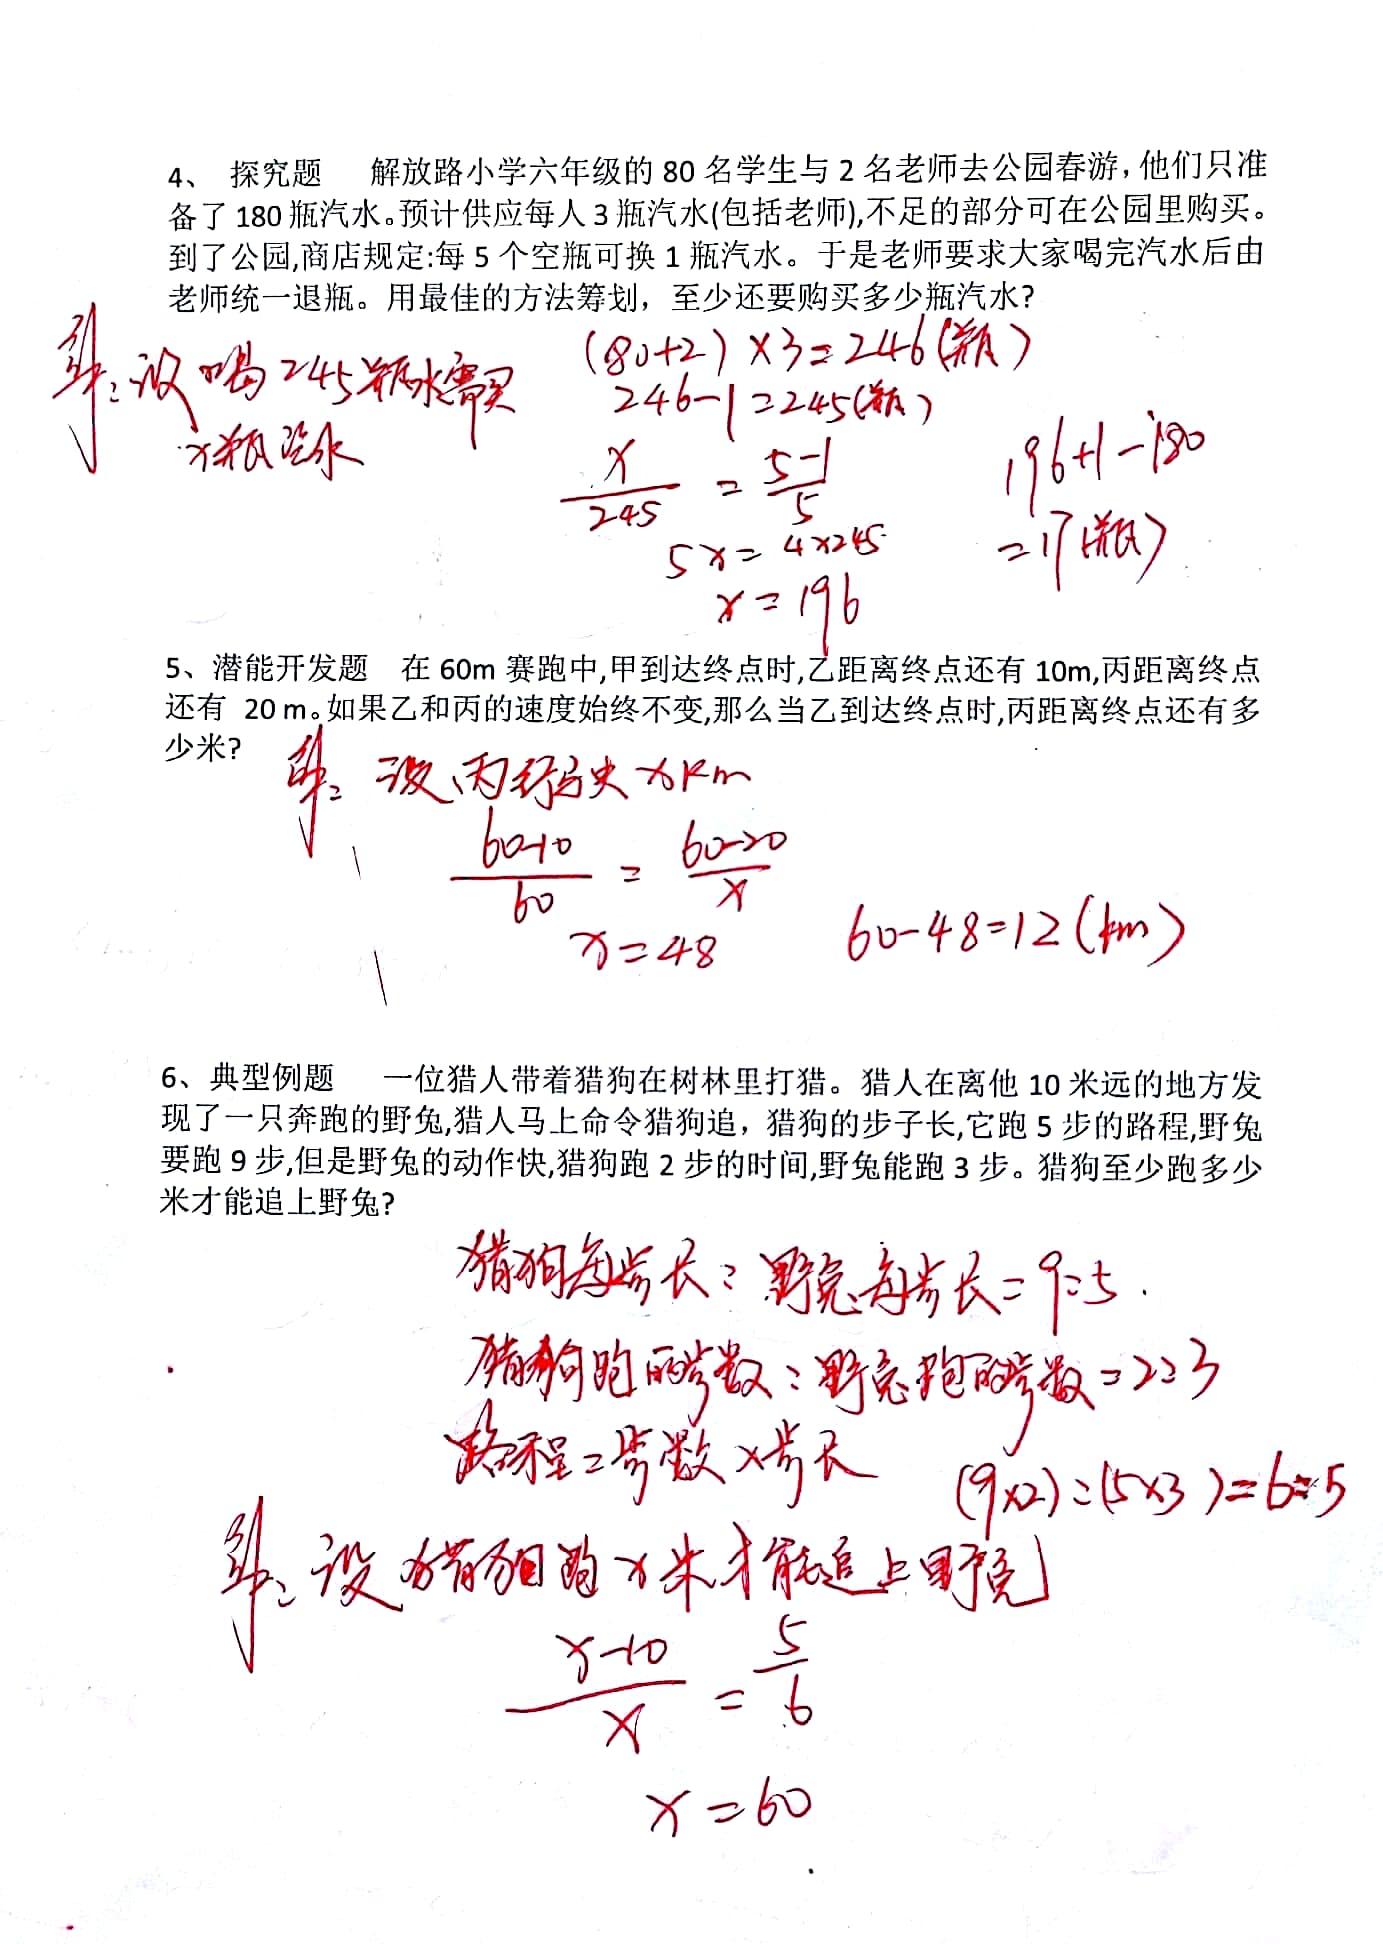 4、 探究题 解放路小学六年级的 80 名学生与 2 名老师去公园春游，他们只准
备了 180 瓶汽水。预计供应每人 3 瓶汽水(包括老师),不足的部分可在公园里购买。
到了公园,商店规定:每 5 个空瓶可换 1 瓶汽水。于是老师要求大家喝完汽水后由
老师统一退瓶。用最佳的方法筹划，至少还要购买多少瓶汽水?
(80+2)×3=246(瓶)
解:设喝245瓶水需买
246-1=245(瓶)
x瓶汽水
x/245 = 5-1/5
196+1-180
5x=4×245
=17(瓶)
x=196
5、潜能开发题 在 60m 赛跑中,甲到达终点时,乙距离终点还有 10m,丙距离终点
还有 20 m。如果乙和丙的速度始终不变,那么当乙到达终点时,丙距离终点还有多
少米?
解: 设丙行驶xkm
60-10/60 = 60-20/x
x=48
60-48=12(km)
6、典型例题 一位猎人带着猎狗在树林里打猎。猎人在离他 10 米远的地方发
现了一只奔跑的野兔,猎人马上命令猎狗追，猎狗的步子长,它跑 5 步的路程,野兔
要跑 9 步,但是野兔的动作快,猎狗跑 2 步的时间,野兔能跑 3 步。猎狗至少跑多少
米才能追上野兔?
猎狗每步长:野兔每步长=9:5.
猎狗跑的步数:野兔跑的步数=2:3
路程=步数×步长
(9×2):(5×3)=6:5
解:设猎狗跑x米才能追上野兔
x-10/x = 5/6
x=60